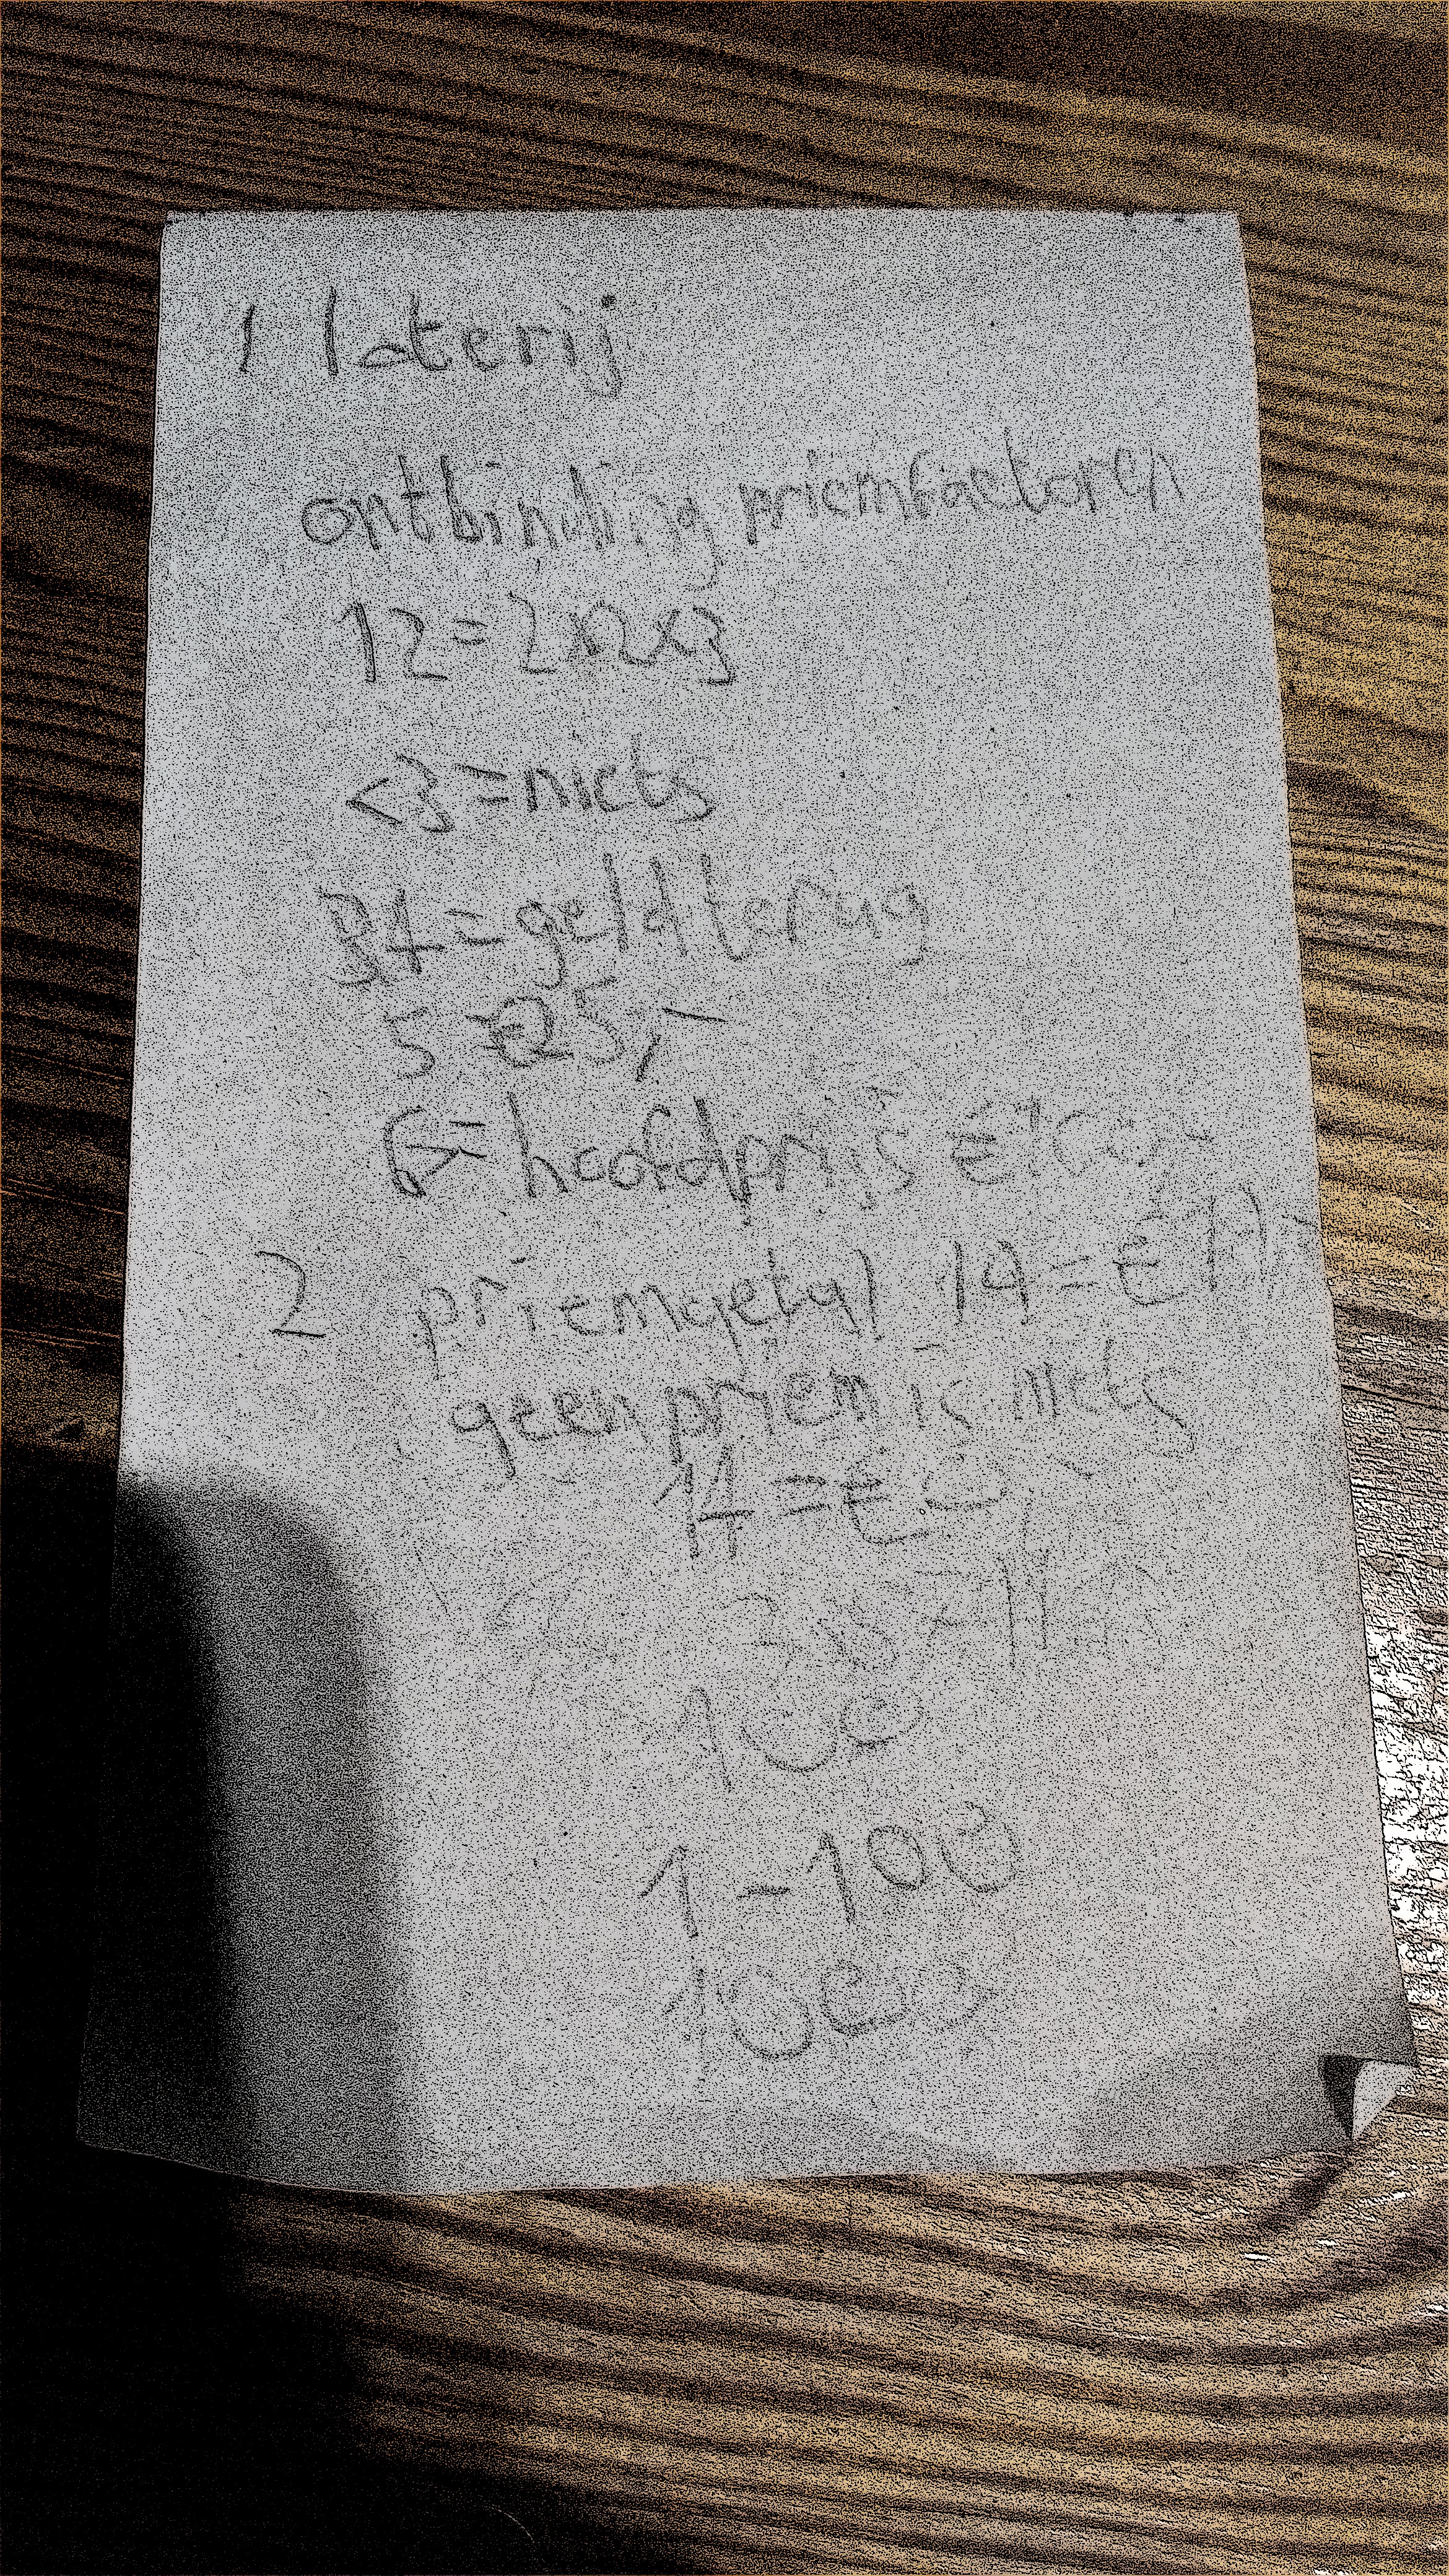 1 loterij
ontbinding priemfactoren
12=2x2x3
<3=niets
34=geld terug
5 =25,-
6= hoofdprijs €100,-
2 priemgetal 14=€
geen priem is niets
14=€
38
100
1-100
1000